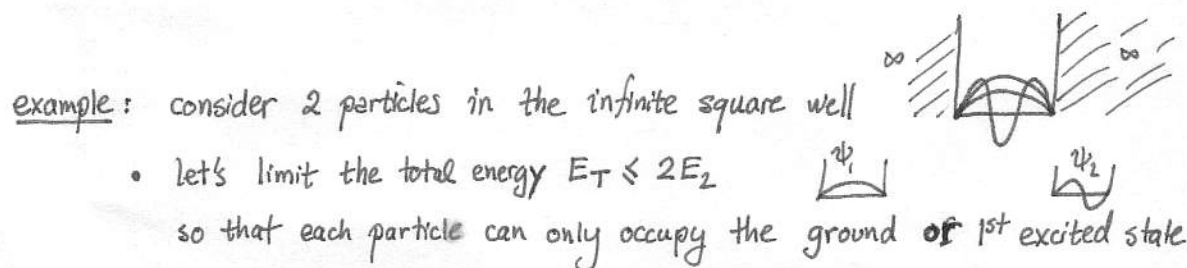 ∞ ∞
example: consider 2 particles in the infinite square well
• let's limit the total energy E_T ≤ 2E_2 ψ_1 ψ_2
so that each particle can only occupy the ground or 1st excited state